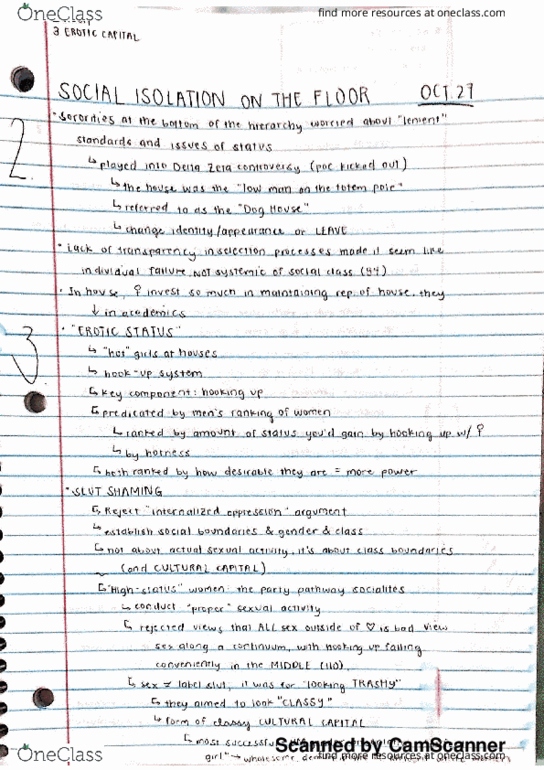 OneClass
find more resources at oneclass.com
3 EROTIC CAPITAL
SOCIAL ISOLATION ON THE FLOOR OCT. 27
2.
• Sororities at the bottom of the hierarchy worried about "lenient"
standards and issues of status
↳ played into Delta Zeta controversy (poc kicked out)
↳ the house was the "low man on the totem pole"
↳ referred to as the "Dog House"
↳ change identity/appearance or LEAVE
• Lack of transparency in selection processes made it seem like
individual failure, NOT systemic of social class (44)
• In house, ♀ invest so much in maintaining rep. of house, they
↓ in academics
3.
• "EROTIC STATUS"
↳ "hot" girls at houses
↳ hook-up system
↳ key component: hooking up
↳ predicated by men's ranking of women
↳ ranked by amount of status you'd gain by hooking up w/ ♀
↳ by hotness
↳ both ranked by how desirable they are = more power
• SLUT SHAMING
↳ Reject "internalized oppression" argument
↳ establish social boundaries & gender & class
↳ not about actual sexual activity, it's about class boundaries
(and CULTURAL CAPITAL)
↳ "High-status" women: the party pathway socialites
↳ conduct "proper" sexual activity
↳ rejected views that ALL sex outside of ♡ is bad view
sex along a continuum, with hooking up falling
conveniently in the MIDDLE (110),
↳ sex ≠ label slut, it was for "looking TRASHY"
↳ they aimed to look "CLASSY"
↳ form of classy CULTURAL CAPITAL
↳ most successful
Scanned by CamScanner
girl" → wholesome,
OneClass
find more resources at oneclass.com